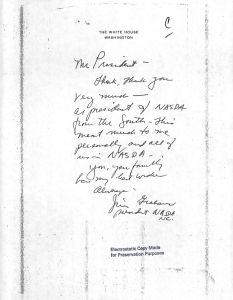 C
THE WHITE HOUSE
WASHINGTON
Mr. President –
Thank, thank you
very much –
as president of NASDA
from the South – this
meant much to me
personally and all of
us in NASDA –
you, your family
has my best wishes
Always –
Jim Graham
President NASDA
N.C.
Electrostatic Copy Made
for Preservation Purposes